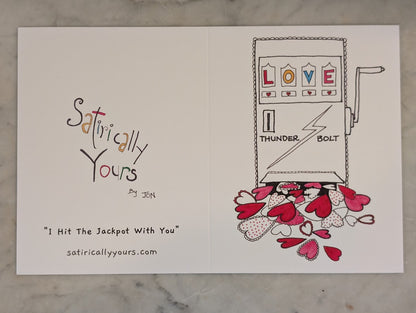 Satirically
Yours
By JEN
"I Hit The Jackpot With You"
satiricallyyours.com
LOVE
THUNDER BOLT